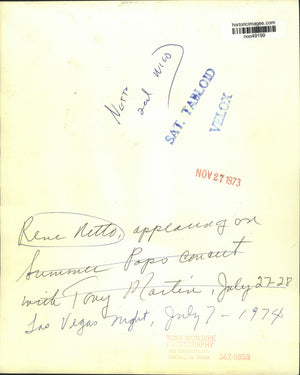 historicimages.com
noo49199
Netto
and Wico
SAT. TABLOID
VELOX
NOV 27 1973
Rene Netto, appearing on
Summer Pops concert
with Tony Martin, July 27-28
Las Vegas night, July 7 - 1974
TONY MCGUIRE
PHOTOGRAPHY
367-8858